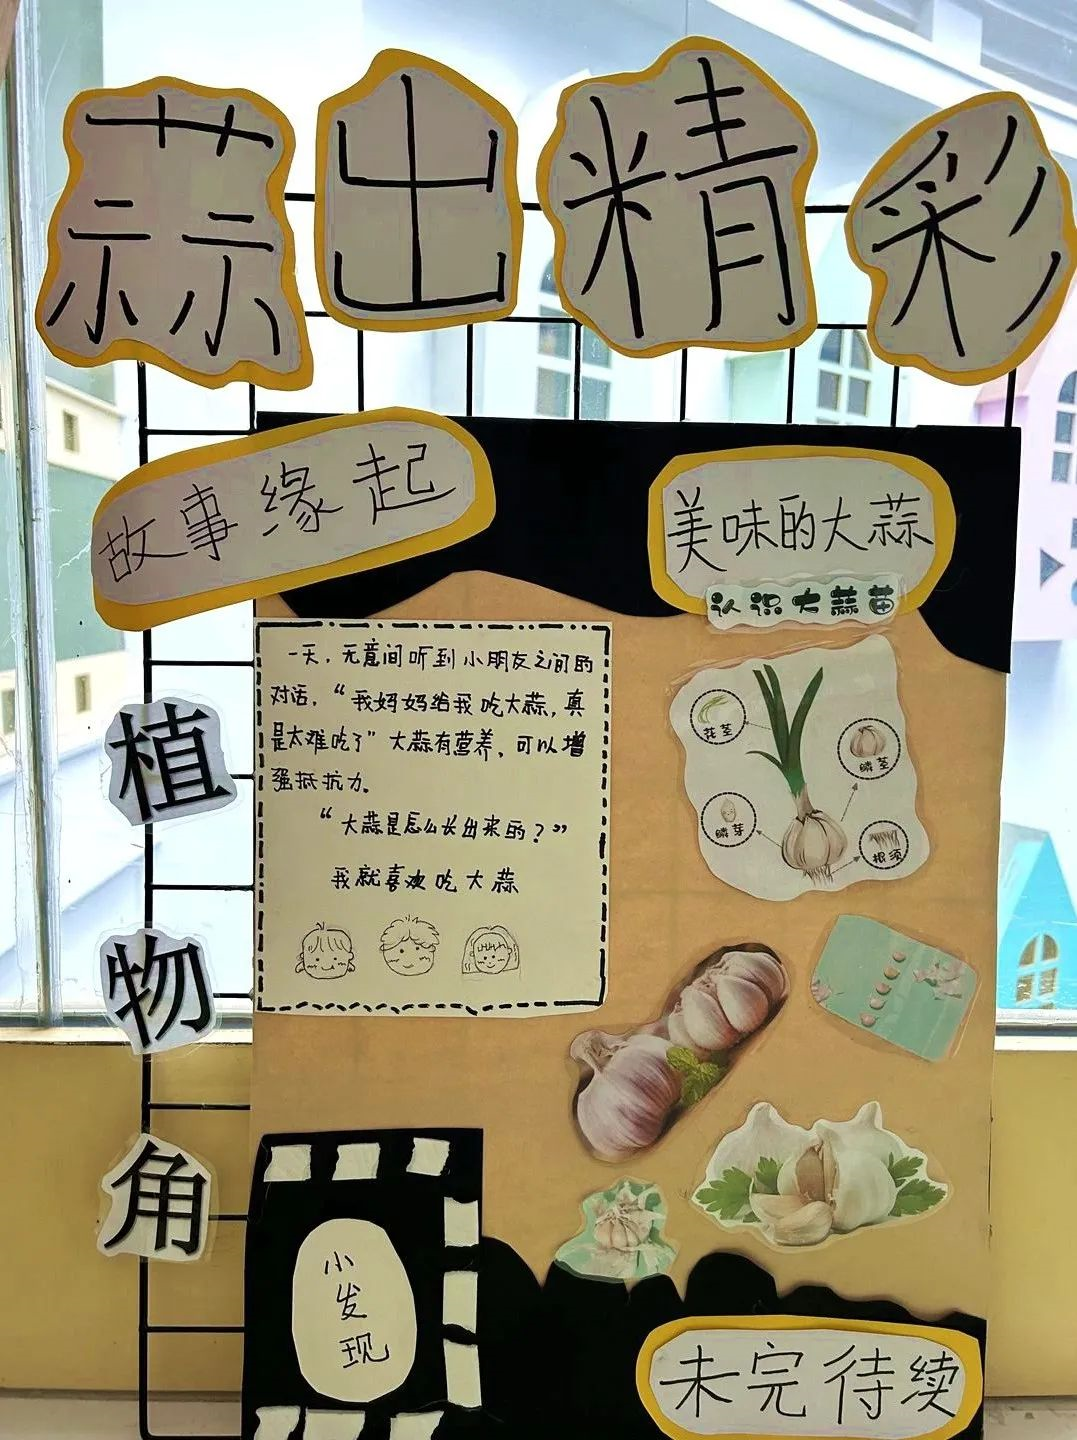 蒜出精彩
故事缘起
美味的大蒜
认识大蒜苗
一天，无意间听到小朋友之间的
对话，“我妈妈给我吃大蒜，真
是太难吃了”大蒜有营养，可以增
强抵抗力。
“大蒜是怎么长出来的？”
我就喜欢吃大蒜
花茎
鳞茎
鳞芽
根须
植物角
小发现
未完待续